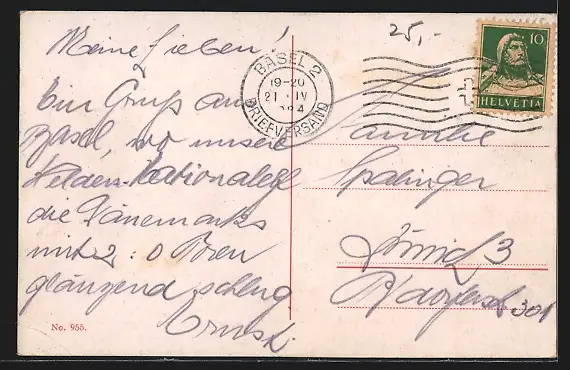 25,-
Meine Lieben!
Ein Gruss aus
Basel, wo unsere
Helden-Nationalelf
die Dänemarks
mit 2:0 Toren
glänzend schlug
Ernst.
No. 955.
BASEL 2
19-20
21. IV
BRIEFVERSAND
10
HELVETIA
Familie
Spalinger
Zürich 3
301